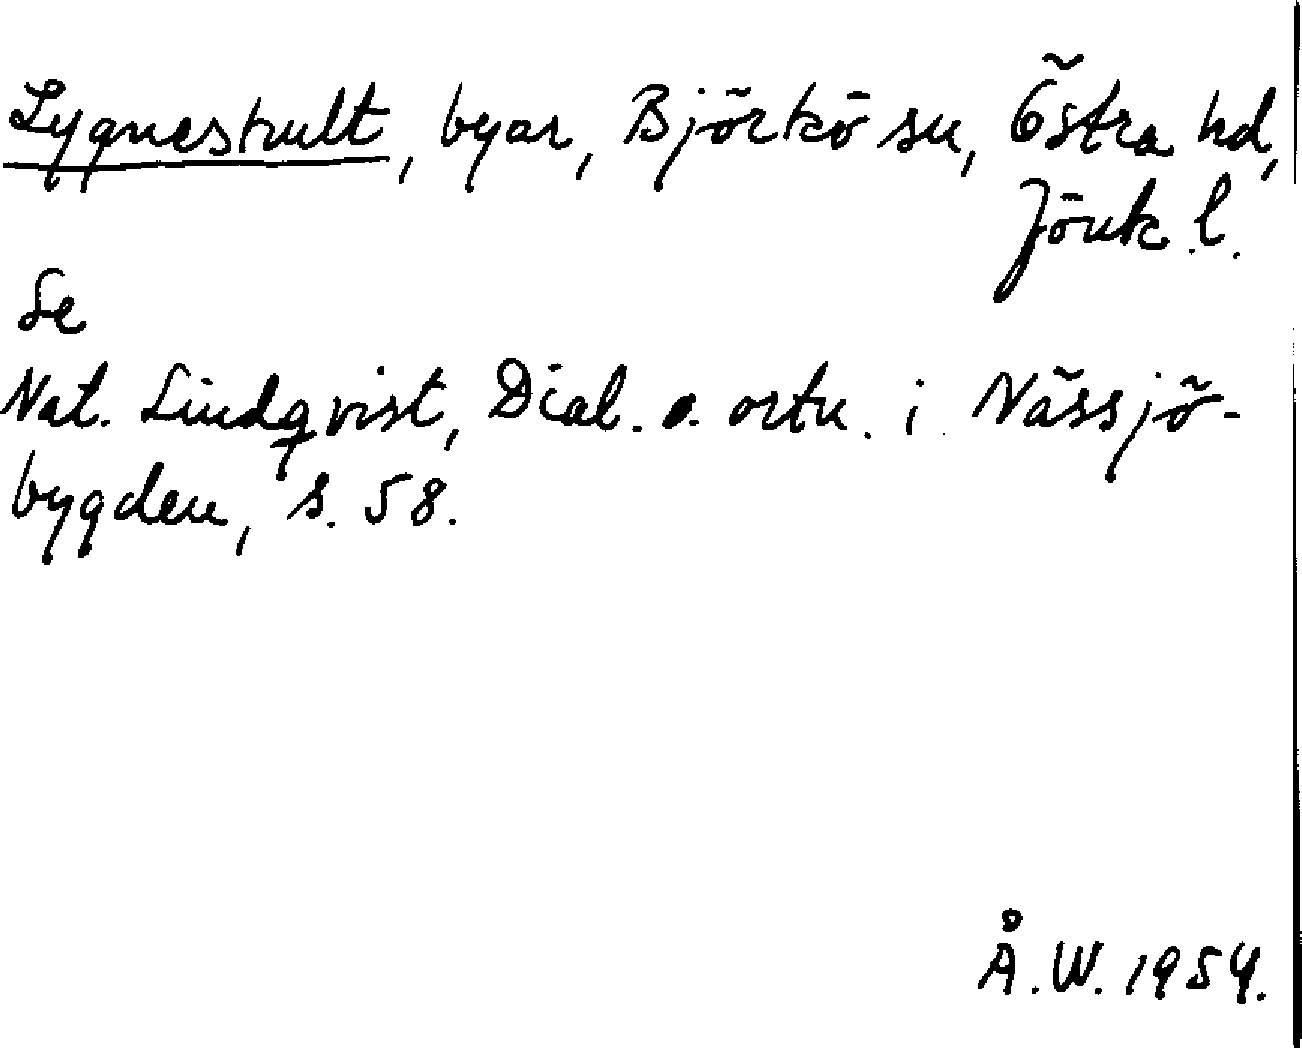 Lygneshult, byar, Björkö sn, Östra hd,
Jönk. l.
Se
Nat. Lindqvist, Dial. o. ortn. i Nässjö-
bygden, s. 58.
Å.W. 1954.